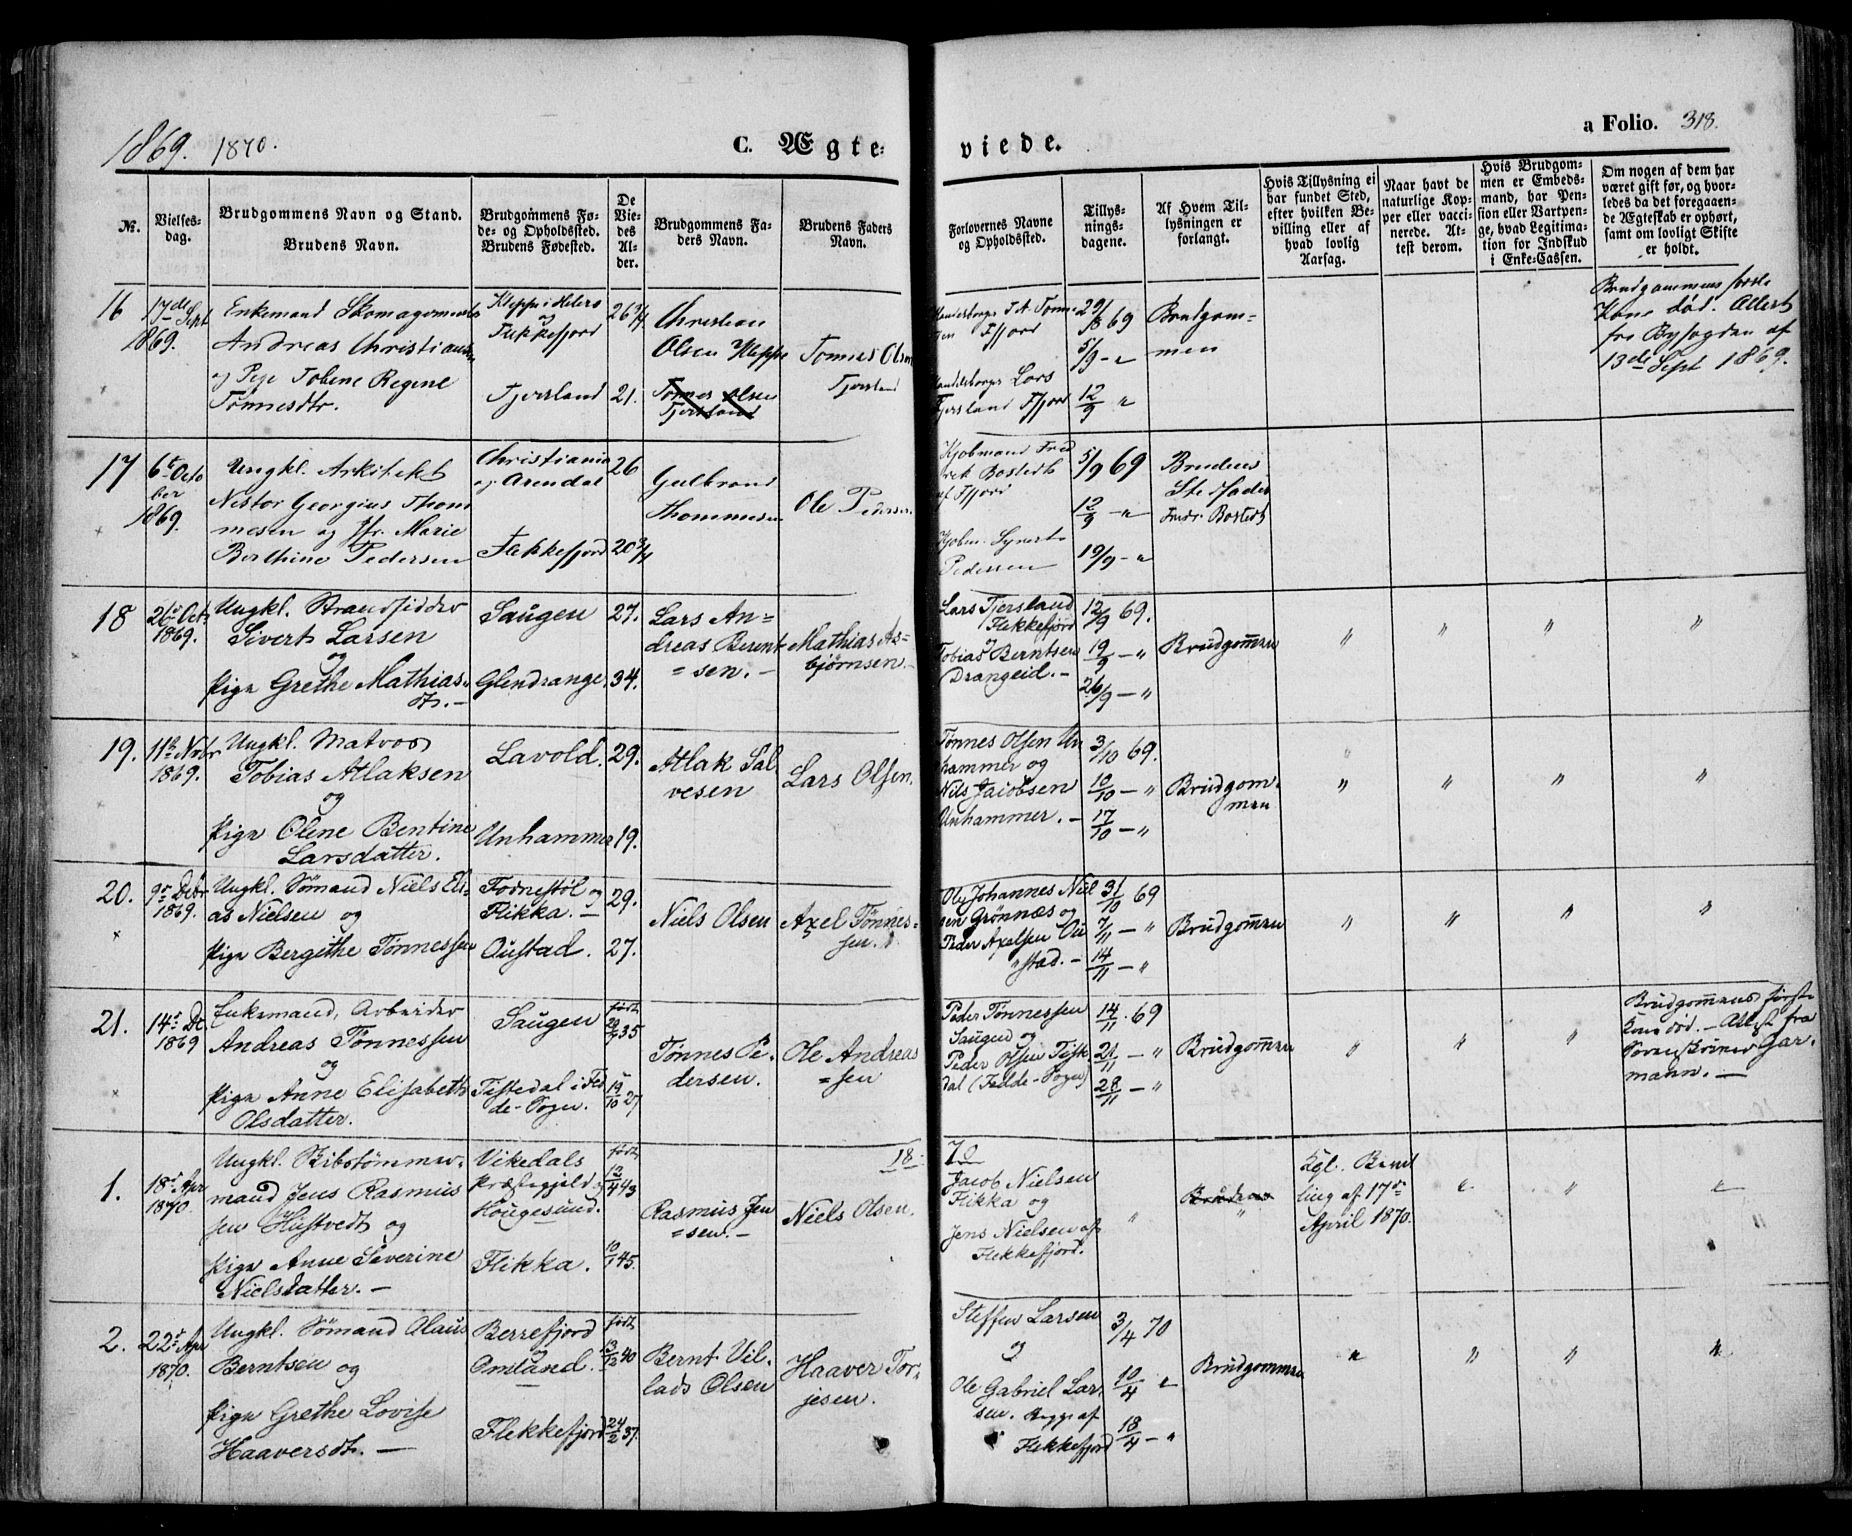 1869. 1870.
C. Ægte-
viede.
a Folio. 318.
No.
Vielses-
dag.
Brudgommens Navn og Stand.
Brudens Navn.
Brudgommens Fø-
de- og Opholdssted.
Brudens Fødested.
De
Vie-
des
Al-
der.
Brudgommens Fa-
ders Navn.
Brudens Faders
Navn.
Forlovernes Navne
og Opholdssted.
Tillys-
nings-
dagene.
Af Hvem Til-
lysningen er
forlangt.
Hvis Tillysning ei
har fundet Sted,
efter hvilken Be-
villing eller af
hvad lovlig
Aarsag.
Naar havt de
naturlige Kop-
per eller vacci-
nerede. At-
test derom.
Hvis Brudgom-
men er Embeds-
mand, har Pen-
sion eller Vartpen-
ge, hvad Legitima-
tion for Indskud
i Enke-Cassen.
Om nogen af dem har
været gift før, og hvor-
ledes da det foregaaen-
de Ægteskab er ophørt,
samt om lovligt Skifte
er holdt.
16
17de Sept
1869.
Enkemand
Andreas Christians
og Pige Tobene Regine
Tønnesdtr.
og
Flekkefjord
Tjersland
26 3/4
21.
Christian
Olsen Kleppe
Tønnes Olsen
Tjersland
Tønnes Olsen
Tjersland
Fjord
Lars
Tjersland Fjord
29/8 69
5/9 - "
12/9 "
Brudgom-
men
Brudgommens første
Kone død. Attest
fra Byfogden af
13de Sept 1869.
17
6te Octo
ber
1869.
Ungkl. Arkitekt
Nestor Georgius Thom
mesen og Jfr. Marie
Berthine Pedersen
Christiania
og Arendal
Flekkefjord
26
20 3/4
Gulbrand
Thommesen
Ole Pedersen
Kjøbmand Fred
rik Bostedt
af Fjord
Kjøbm. Syvert
Pedersen
5/9 69
12/9 - "
19/9 - "
Brudens
Stedfader
Fredr. Bostedt
18
26de Oct.
1869.
Ungkl. Strandsidder
Sivert Larsen
og
Pige Grethe Mathias-
dtr. -
Saugen
Glendrange
27.
34.
Lars An=
dreas Bernt
=sen. -
Mathias As=
bjørnsen -
Lars Tjersland
Flekkefjord
Tobias Berntsen
Drangeid. -
12/9 69.
19/9 - "
26/9 - "
Brudgommen
" " " "
19.
11te Novbr
1869.
Ungkl. Matros
Tobias Atlaksen
og
Pige Olene Bentine
Larsdatter.
Lavold.
Unhammer
29.
19.
Atlak Sal
vesen
Lars Olsen.
Tønnes Olsen Un
hammer og
Nils Jacobsen
Unhammer. -
3/10 69.
10/10 - "
17/10 - "
Brudgom-
men
" " " "
20.
9de Debr
1869.
Ungkl. Sømand Niels Eli-
as Nielsen og
Pige Bergithe Tønnessen
Fodnestøl og
Flikka. -
Oustad.
29.
27.
Niels Olsen
Axel Tønnes-
sen.
Ole Johannes Niel
sen Grønnæs og
Peder Axelsen Ou
stad. -
31/10 69
7/11 - "
14/11 - "
Brudgommen
" " " "
21.
14de De.
1869
Enkemand, Arbeider
Andreas Tønnessen
og
Pige Anne Elisabeth
Olsdatter.
Saugen
Tistedal i Fed
de-Sogn.
født
35
19/10 27
Tønnes Pe-
dersen.
Ole Andreas
=sen
Peder Tønnessen
Saugen og
Peder Olsen Tiste
dal (Fedde-Sogn)
14/11 69
21/11 - "
28/11 - "
Brudgommen
" " "
Brudgommens første
Kone død. - Attest fra
Sorenskriver Gar-
mann. -
1870
1.
18de Apr
1870.
Ungkl.
mand Jens Rasmus
sen Hustvedt og
Pige Anne Severine
Nielsdatter. -
Vikedals
Præstegjeld og
Hougesund.
Flikka.
født
12/4 43
10/1 45.
Rasmus Jen
=sen. -
Niels Olsen.
Jacob Nielsen
Flikka og
Jens Nielsen af
Flekkefjord.
"
"
Kgl. Bevil
ling af 17de
April 1870.
" " "
2.
22de Apr
1870.
Ungkl. Sømand Olaus
Berntsen og
Pige Grethe Lovise
Haaversdt. -
Berrefjord
og
Omland.
Flekkefjord
født
13/12 40
24/2 37.
Bernt Vil-
lads Olsen
Haaver Tor-
jesen.
Steffen Larsen
og
Ole Gabriel Lar-
sen. Begge af
Flekkefjord
3/4 70
10/4 "
18/4 - "
Brudgommen
" " " "